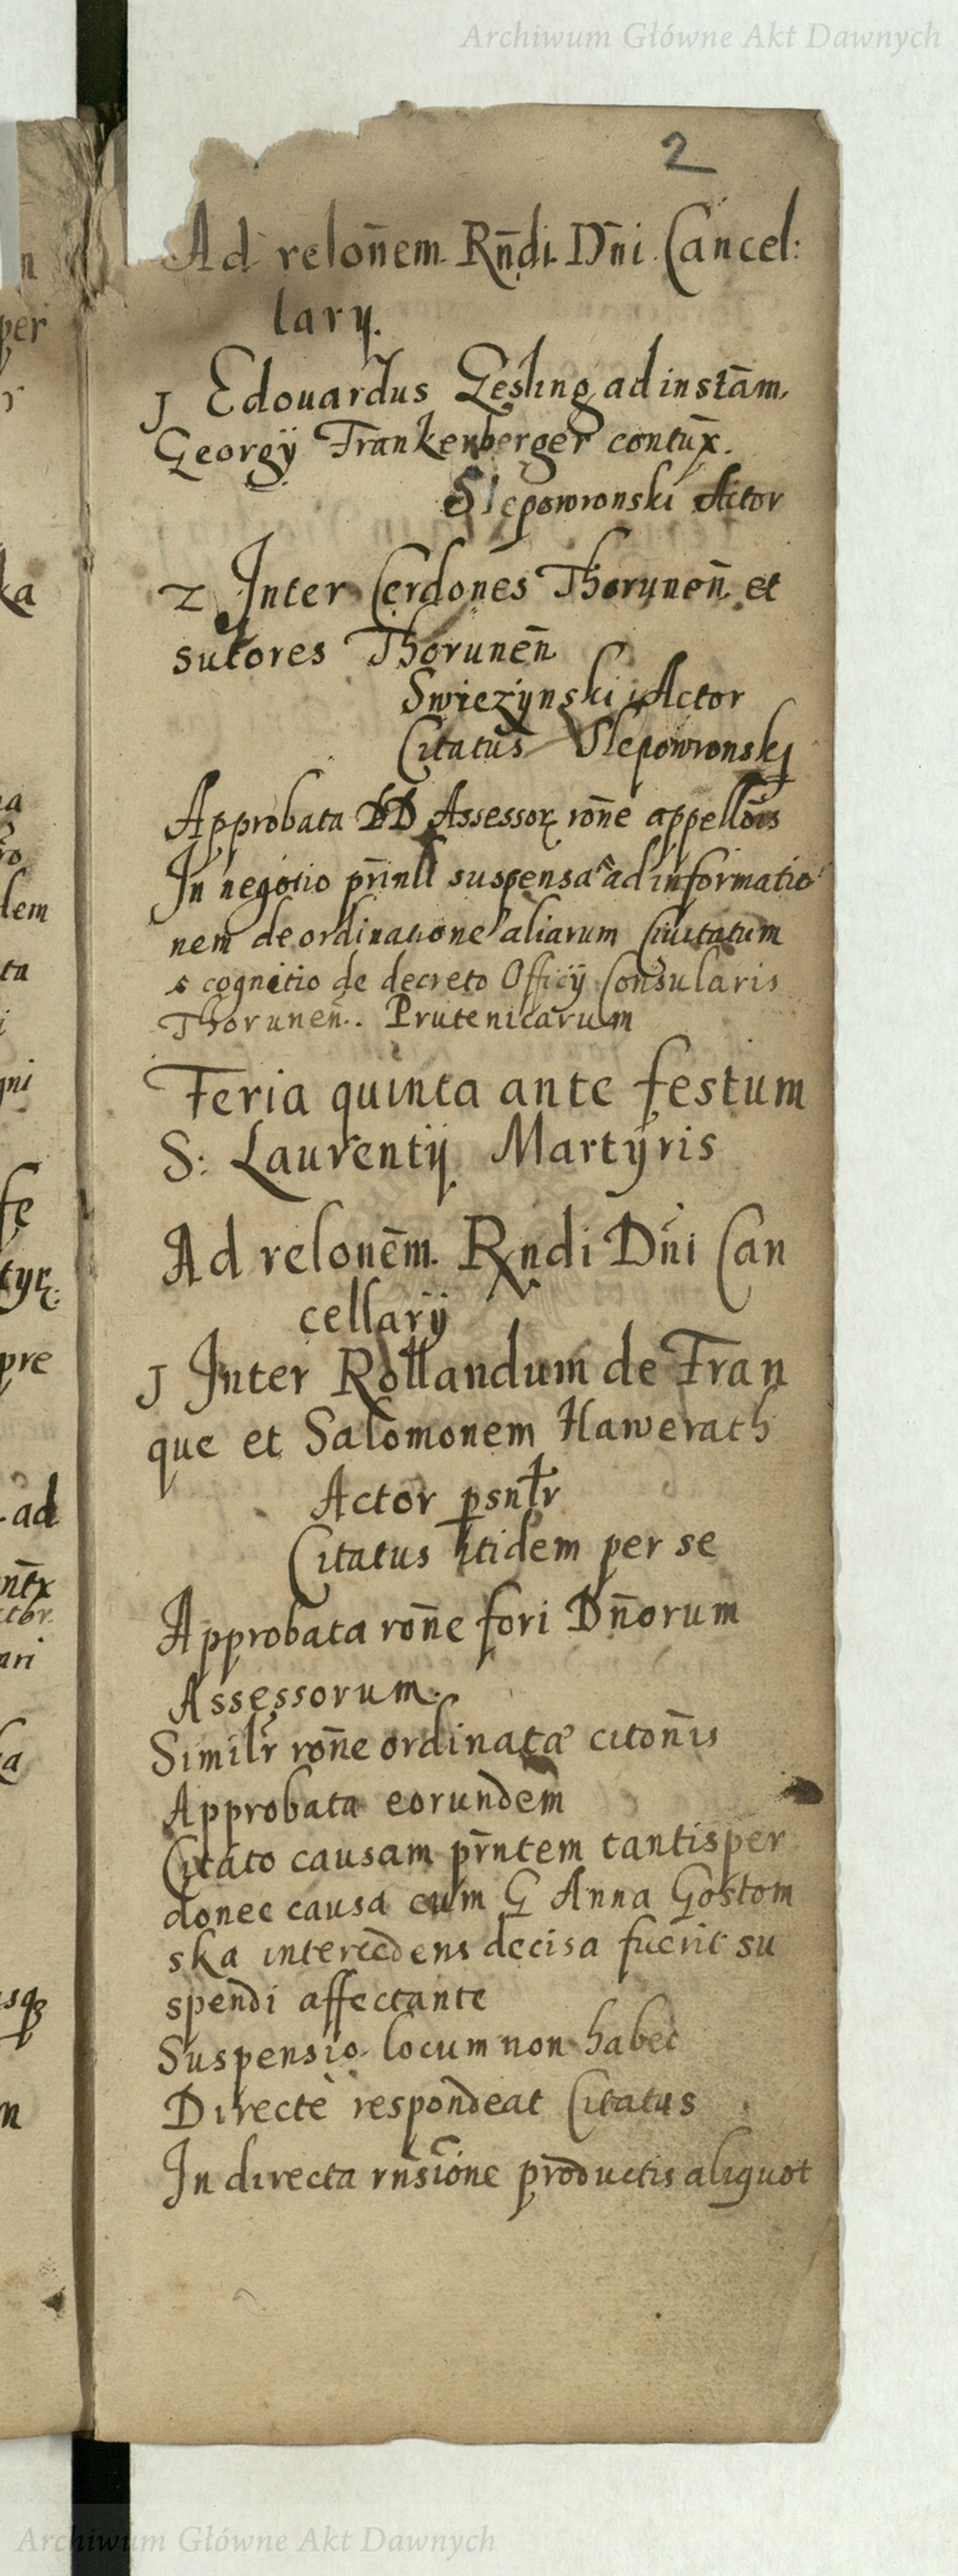 Archiwum Główne Akt Dawnych
2
Ad relon̄em. Rn̄di Dn̄i Cancel:
lary.
1 Edouardus Gesling ad instām.
Georgÿ Frankenberger contūx.
Slepowronski Actor
2 Inter Cerdones Thorunen̄ et
sutores Thorunen̄
Swiezÿnski Actor
Citatus Slepowronskj
Approbata DD Assessor ron̄e appellōis
In negotio pr̄inlī suspensa ad informatio
nem de ordinatione aliarum Ciuitatum
s cognitio de decreto Officÿ Consularis
Thorunen̄.. Prutenicarum
Feria quinta ante festum
S: Laurentÿ Martÿris
Ad relonēm. Rndi Dn̄i Can
cellarÿ
1 Inter Rollandum de Fran
que et Salomonem Hawerath
Actor psnłr
Citatus itidem per se
Approbata ron̄e fori Dn̄orum
Assessorum.
Similr̄ ron̄e ordinatæ citon̄is
Approbata eorundem
Citato causam pr̄ntem tantisper
donec causa cum G Anna Gostom
ska intercedens decisa fuerit su
spendi affectante
Suspensio locum non habet
Directè respondeat Citatus
In directa rn̄sione productis aliquot
per
ka
dem
ta
tyr
pre
ad
ri
Archiwum Główne Akt Dawnych